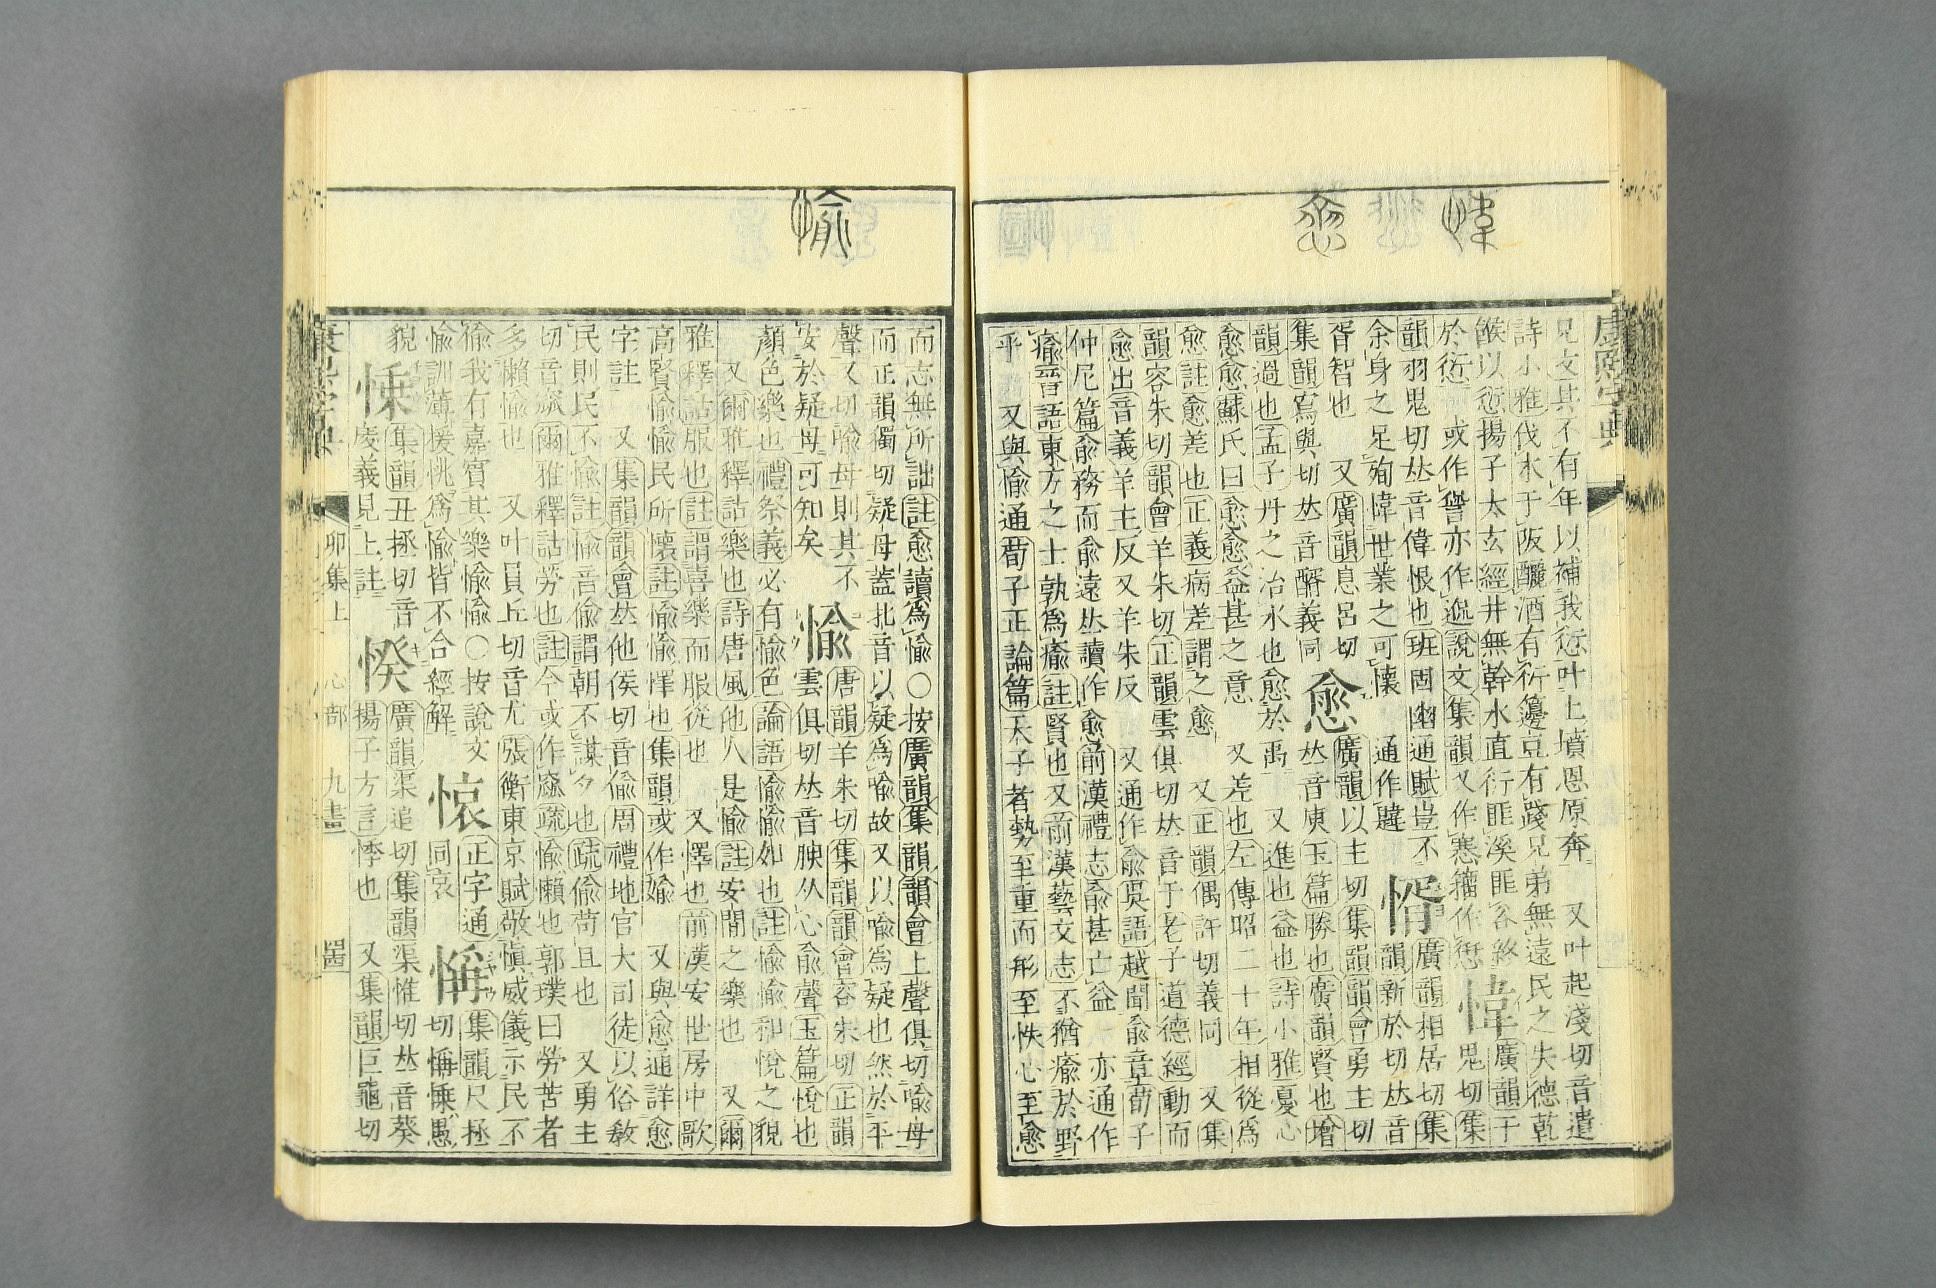 康熙字典
愇
愈
兄文其不有年以補我愆叶上墳恩原奔 又叶起淺切音遣
詩小雅伐木于阪釃酒有衍籩豆有踐兄弟無遠民之失德乾
餱以愆揚子太玄經井無幹水直衍匪谿匪谷終 愇 廣韻于
於愆 或作諐亦作 說文集韻又作 籀作 鬼切集
韻羽鬼切𠀤音偉恨也班固幽通賦豈不 㥠 廣韻相居切集
余身之足殉愇世業之可懷 通作韙 韻新於切𠀤音
胥智也 又廣韻息呂切 愈 廣韻以主切集韻韻會勇主切
集韻寫與切𠀤音醑義同 𠀤音庾玉篇勝也廣韻賢也增
韻過也孟子丹之治水也愈於禹 又進也益也詩小雅憂心
愈愈蘇氏曰愈愈益甚之意 又差也左傳昭二十年相從爲
愈註愈差也正義病差謂之愈 又正韻偶許切義同 又集
韻容朱切韻會羊朱切正韻雲俱切𠀤音于老子道德經動而
愈出音義羊主反又羊朱反 又通作兪吳語越聞兪章荀子
仲尼篇兪務而兪遠𠀤讀作愈前漢禮志兪甚亡益 亦通作
瘉晉語東方之士孰爲瘉註賢也又前漢藝文志不猶瘉於野
乎 又與愉通荀子正論篇天子者勢至重而形至佚心至愈
愉
而志無所詘註愈讀爲愉○按廣韻集韻韻會上聲俱切喩母
而正韻獨切疑母蓋北音以疑爲喩故又以喩爲疑也然於平
聲又切喩母則其不 愉 唐韻羊朱切集韻韻會容朱切正韻
安於疑母可知矣 雲俱切𠀤音腴从心兪聲玉篇悅也
顏色樂也禮祭義必有愉色論語愉愉如也註愉愉和悅之貌
又爾雅釋詁樂也詩唐風他人是愉註安閒之樂也 又爾
雅釋詁服也註謂喜樂而服從也 又懌也前漢安世房中歌
高賢愉愉民所懷註愉愉懌也集韻或作媮 又與愈通詳愈
字註 又集韻韻會𠀤他侯切音偷周禮地官大司徒以俗敎
民則民不愉註愉音偷謂朝不謀夕也疏偷苟且也 又勇主
切音窳爾雅釋詁勞也註今或作窳疏愉懶也郭璞曰勞苦者
多懶愉也 又叶員丘切音尤張衡東京賦敬愼威儀示民不
愉我有嘉賓其樂愉愉○按說文 正字通 集韻尺拯
愉訓薄援恌爲愉皆不合經解 同哀 切 愚
貌 集韻丑拯切音 廣韻渠追切集韻渠惟切𠀤音葵
義見上註 揚子方言悸也 又集韻巨龜切
康熙字典 卯集上 心部 九畫